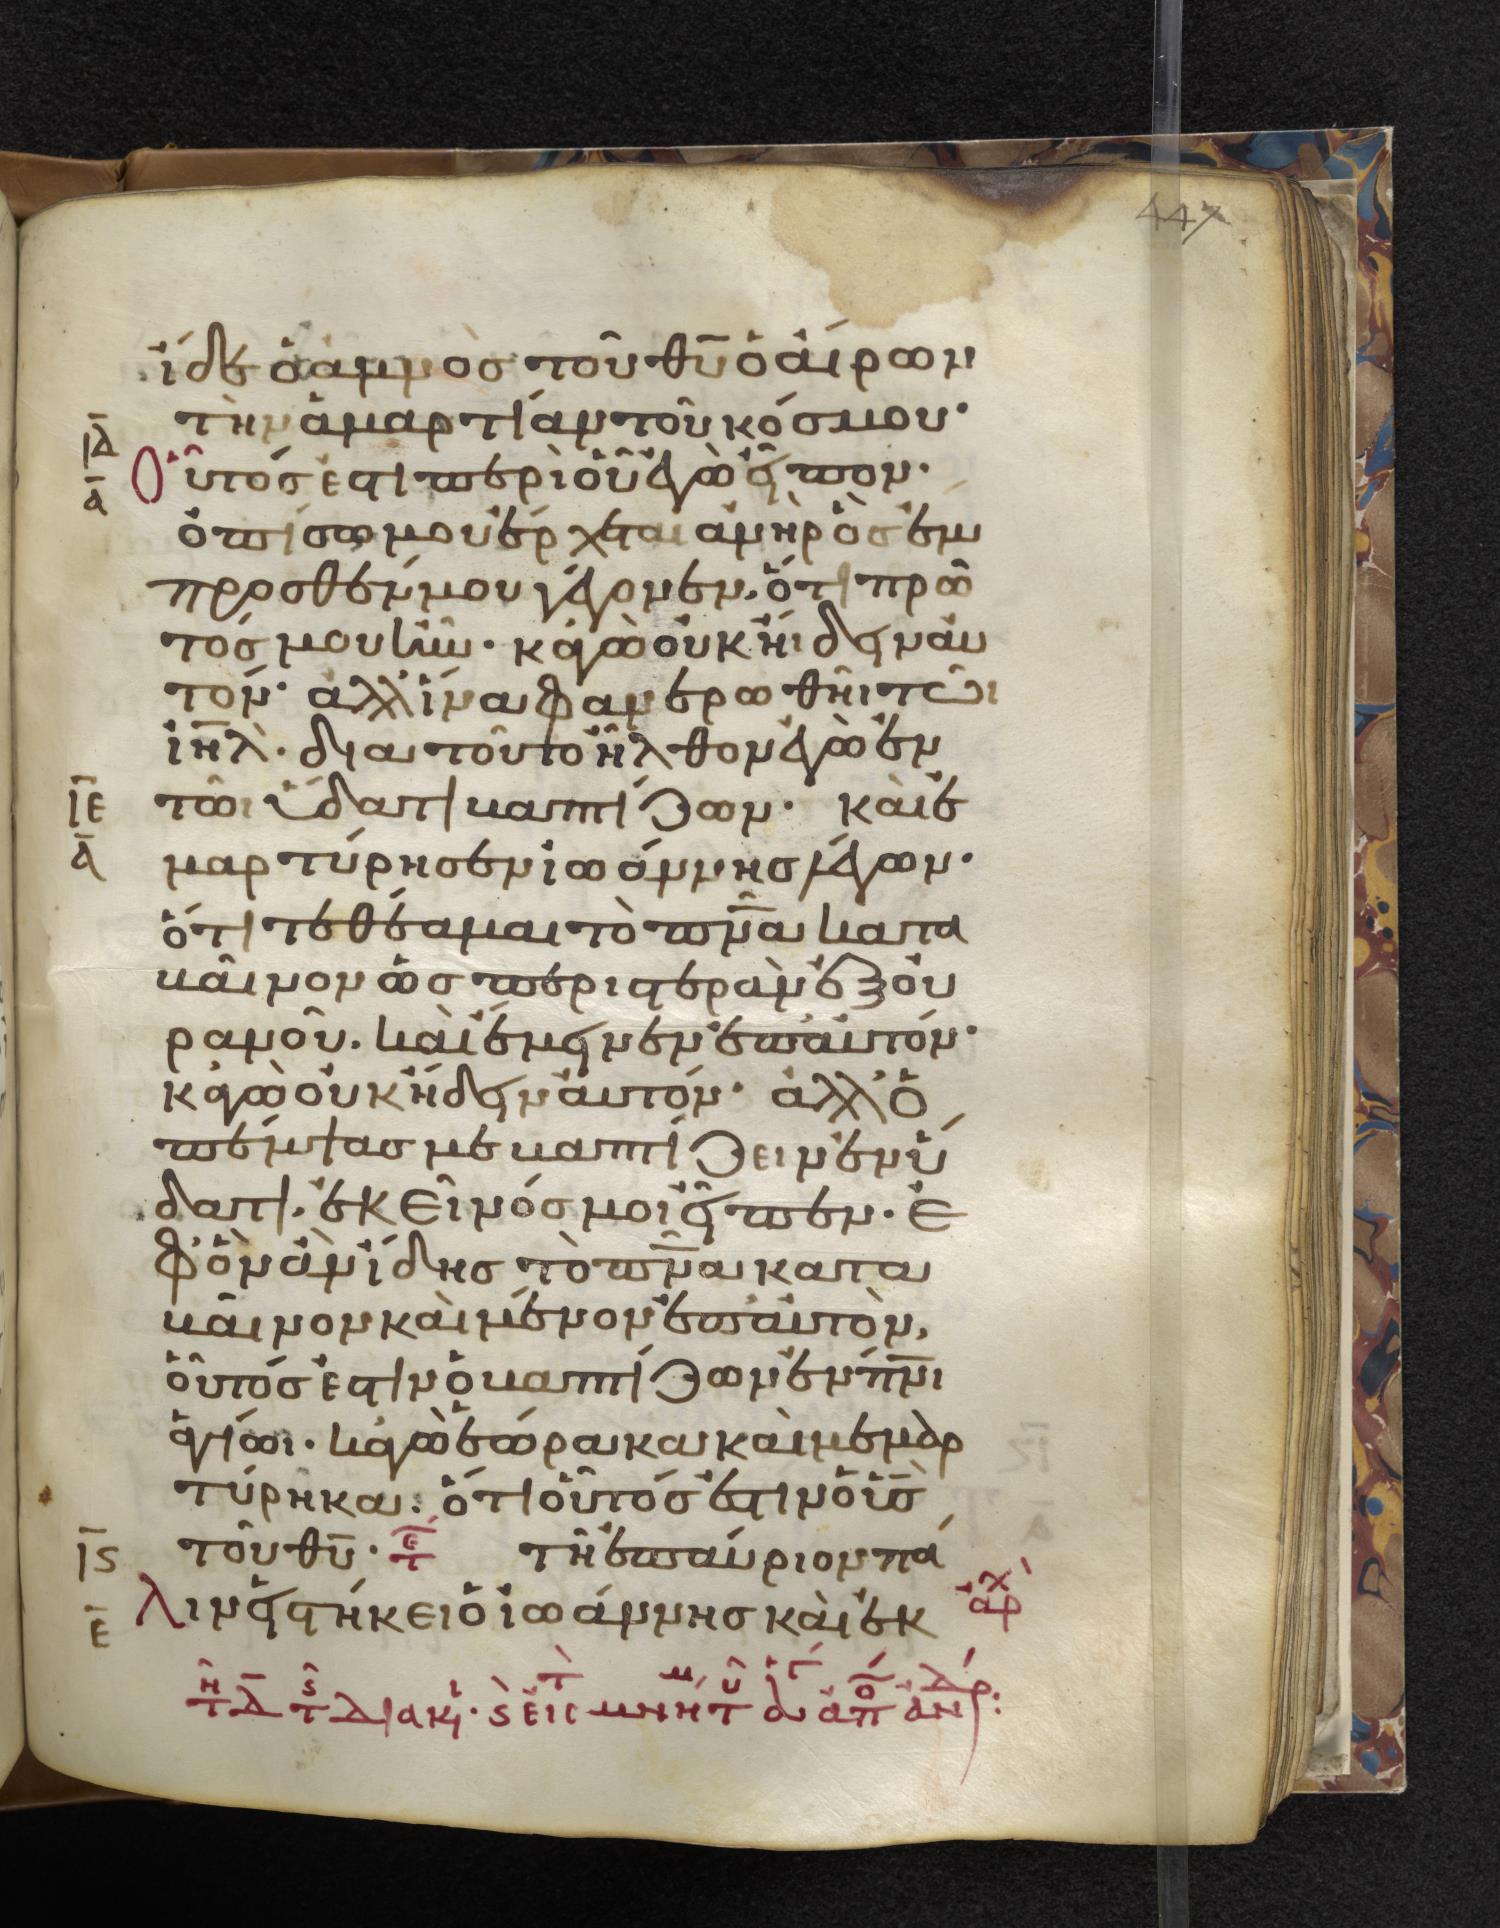 447
ἴδε ὁ ἀμνὸς τοῦ θῡ ὁ αἴρων
τὴν ἁμαρτίαν τοῦ κόσμου·
ΙΔ
Α
Οὗτός ἐστι περὶ οὗ ἐγὼ εἶπον·
ὀπίσω μου ἔρχεται ἀνὴρ ὃς ἔμ
προσθέν μου γέγονεν. ὅτι πρῶ
τός μου ἦν· κἀγὼ οὐκ ἤιδειν αὐ
τόν· ἀλλ' ἵνα φανερωθῆι τῶι
ἰη̄λ̀. δια τοῦτο ἦλθον ἐγὼ ἐν
ΙΕ
Α
τῶι ὕδατι βαπτίζων· καὶ ἐ
μαρτύρησεν ἰωάννης λέγων·
ὅτι τεθέαμαι τὸ πν̄α κατα
βαῖνον ὡς περιστερὰν ἐξ οὐ
ρανοῦ. καὶ ἔμεινεν ἐπ' αὐτόν·
κἀγὼ οὐκ ἤδειν αὐτόν· ἀλλ' ὁ
πέμψας με βαπτίζειν ἐν ὕ
δατι. ἐκεῖνός μοι εἶπεν· ἐ
φ' ὃν ἂν ἴδης τὸ πν̄α κατα
βαῖνον καὶ μένον ἐπ' αὐτὸν,
οὗτός ἐστιν ὁ βαπτίζων ἐν πν̄ι
ἁγίωι. κἀγὼ ἑώρακα καὶ μεμαρ
τύρηκα. ὅτι οὗτός ἐστιν ὁ ῡς̀
ΙϚ
Ε
τοῦ θῡ· τε τῆ ἐπαύριον πά
λιν εἱστήκει ὁ ἰωάννης καὶ ἐκ
ἀρχ
τη δ τς διακι· ς εις μνη τ ἁγ απο ανδρ: